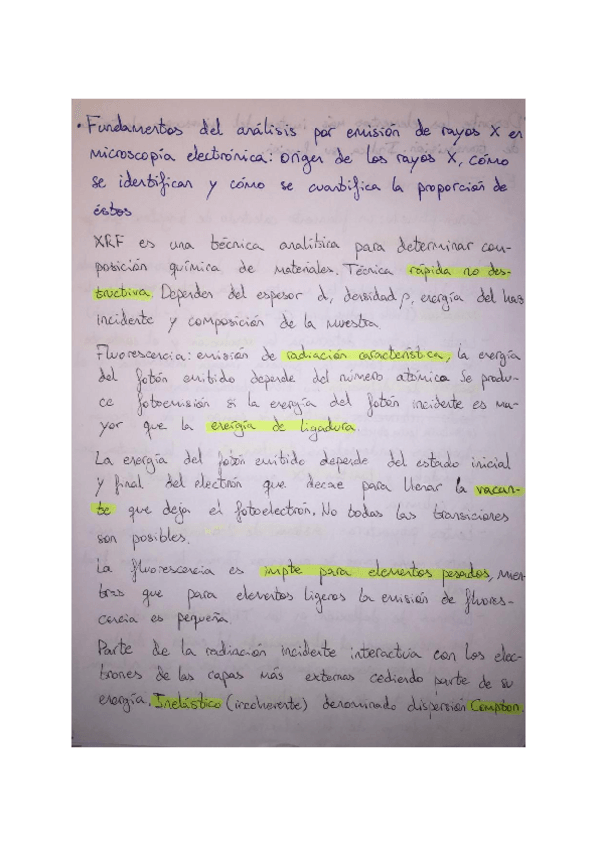 · Fundamentos del análisis por emisión de rayos X en
microscopía electrónica: origen de los rayos X, cómo
se identifican y cómo se cuantifica la proporción de
éstos
XRF es una técnica analítica para determinar com-
posición química de materiales. Técnica rápida no des-
tructiva. Depender del espesor d, densidad ρ, energía del haz
incidente y composición de la muestra.
Fluorescencia: emisión de radiación característica, la energía
del fotón emitido depende del número atómico Se produ-
ce fotoemisión si la energía del fotón incidente es ma-
yor que la energía de ligadura.
La energía del fotón emitido depende del estado inicial
y final del electrón que decae para llenar la vacan-
te que deja el fotoelectrón. No todas las transiciones
son posibles.
La fluorescencia es impte para elementos pesados, mien-
tras que para elementos ligeros la emisión de fluores-
cencia es pequeña.
Parte de la radiación incidente interactua con los elec-
trones de las capas más externas cediendo parte de su
energía. Inelástico (incoherente) denominado dispersión Compton.